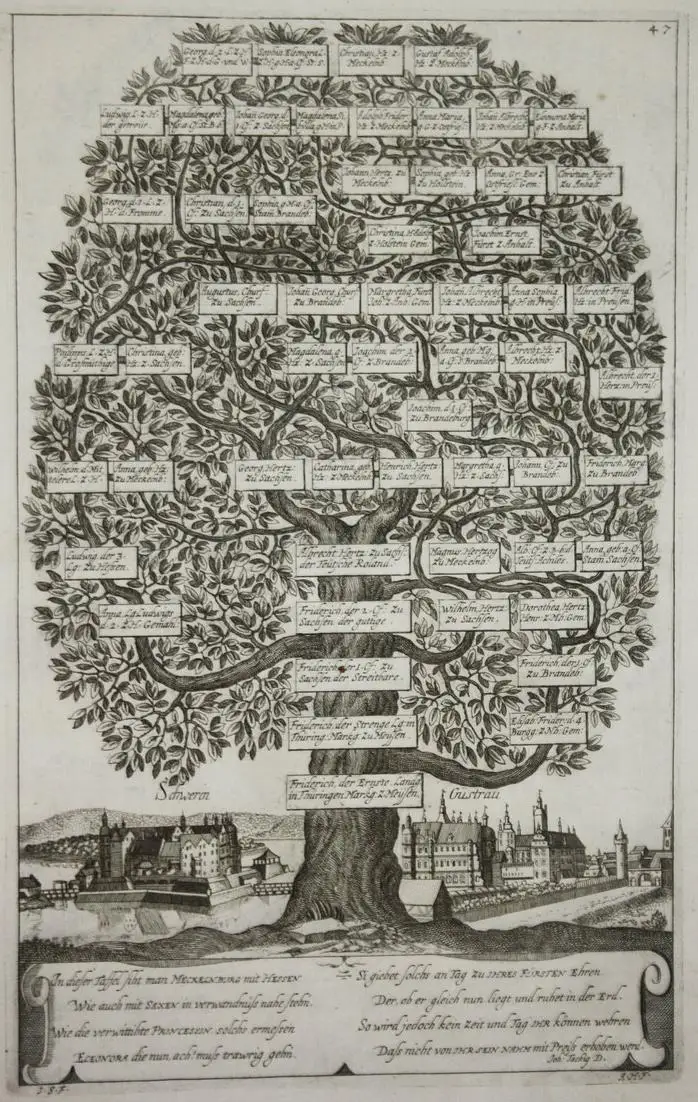 47
Georg. d. 2. L. Z. H.
F. Z. H. d. G. und W.
Sophia Eleonora L.
Christian, Hz. z.
Meckelnb.
Gustaf Adolph,
Hz. z. Meckenb.
Ludwig. L. Z. H.
der getreue
Magdalena geb.
Johan Georg. d. 1.
Cf. z. Sachsen
Magdalena Si.
Adolph Frider.
Hz. z. Meckenb.
Anna Maria,
g. G. z. Ostfriesl.
Johan Albrecht
Hz. z. Meckelnb.
Eleonora Maria
g. F. z. Anhalt.
Johann Hertz. zu
Meckelnb.
Sophia, geb. Hz.
zu Holstein.
Anna, Gr. Enn. z.
Ostfriesl. Gem.
Christian, Fürst
zu Anhalt.
Georg. d. 1. L. z.
H. d. Fromme.
Christian, d. 1.
Cf. zu Sachsen
Sophia g. M. a. Cf.
Stam Brandeb.
Christina, H. Adolf.
z. Holstein Gem.
Joachim Ernst,
Fürst z. Anhalt.
Augustus, Churf.
zu Sachsen.
Johan Georg, Churf.
zu Brandeb.
Margretha, Fürst
Joh. z. Anh. Gem.
Johan Albrecht
Hz. z. Meckelnb.
Anna Sophia
g. H. in Preus.
Albrecht Frid.
Hz. in Preussen.
Philipps L. Z. H.
d. Großmühtige
Christina, geb.
Hz. z. Sachsen.
Magdalena, g.
Hz. z. Sachsen
Joachim der 2.
Cf. z. Brandeb.
Anna, geb. Mg.
a. Cf. S. Brandeb.
Albrecht Hz. z.
Meckelnb.
Albrecht, der 1.
Hertz. in Preus.
Joachim, d. 1. Cf.
zu Brandeburg
Wilhelm, d. Mit
telere L. z. H.
Anna, geb. Hz.
zu Meckelnb.
Georg, Hertz.
zu Sachsen.
Catharina, geb.
Hz. z. Meckelnb.
Henrich, Hertz.
zu Sachsen
Margretha g.
Hz. z. Sachs.
Johann, Cf. zu
Brandeb.
Friderich, Marg.
zu Brandeb.
Ludwig, der 3.
Lg. zu Hessen.
Albrecht, Hertz. zu Sachs.
der Teutsche Roland.
Magnus, Hertzog
zu Meckelnb.
Alb. Cf. z. B. d.
Teutsch Achiles.
Anna, geb. a. Cf.
Stam Sachsen.
Anna, Lg. Ludwigs
d. 2. z. H. Gemahl.
Friderich, der 2. Cf. zu
Sachsen der gütige.
Wilhelm, Hertz.
zu Sachsen.
Dorothea, Hertz.
Henr. z. Mb. Gem.
Friderich der 1. Cf. zu
Sachsen der Streitbare.
Friderich, der 1. Cf.
zu Brandeb.
Friderich, der Strenge Lg. in
Thüring. Markg. zu Meyssen.
Elisab. Frider. d. 4.
Burgg. z. Nb. Gem.
Friderich, der Ernste. Landg.
in Thüringen Markg. z. Meyssen.
Schwerin
Gustrau
In dieser Taffel siht man MECKELNBURG mit HESSEN
Wie auch mit SAXEN in verwandnüß nahe stehn.
Wie die verwittibte PRINCESSIN solchs ermessen
ELEONORA die nun, ach! muß trawrig gehn.
Si giebet solchs an Tag zu IHRES FÜRSTEN Ehren
Der, ob er gleich nun liegt und ruhet in der Erd,
So wird jedoch kein Zeit und Tag IHR können wehren
Daß nicht von IHR SEIN NAHM mit Preiß erhoben werd.
Joh. Tackig D.